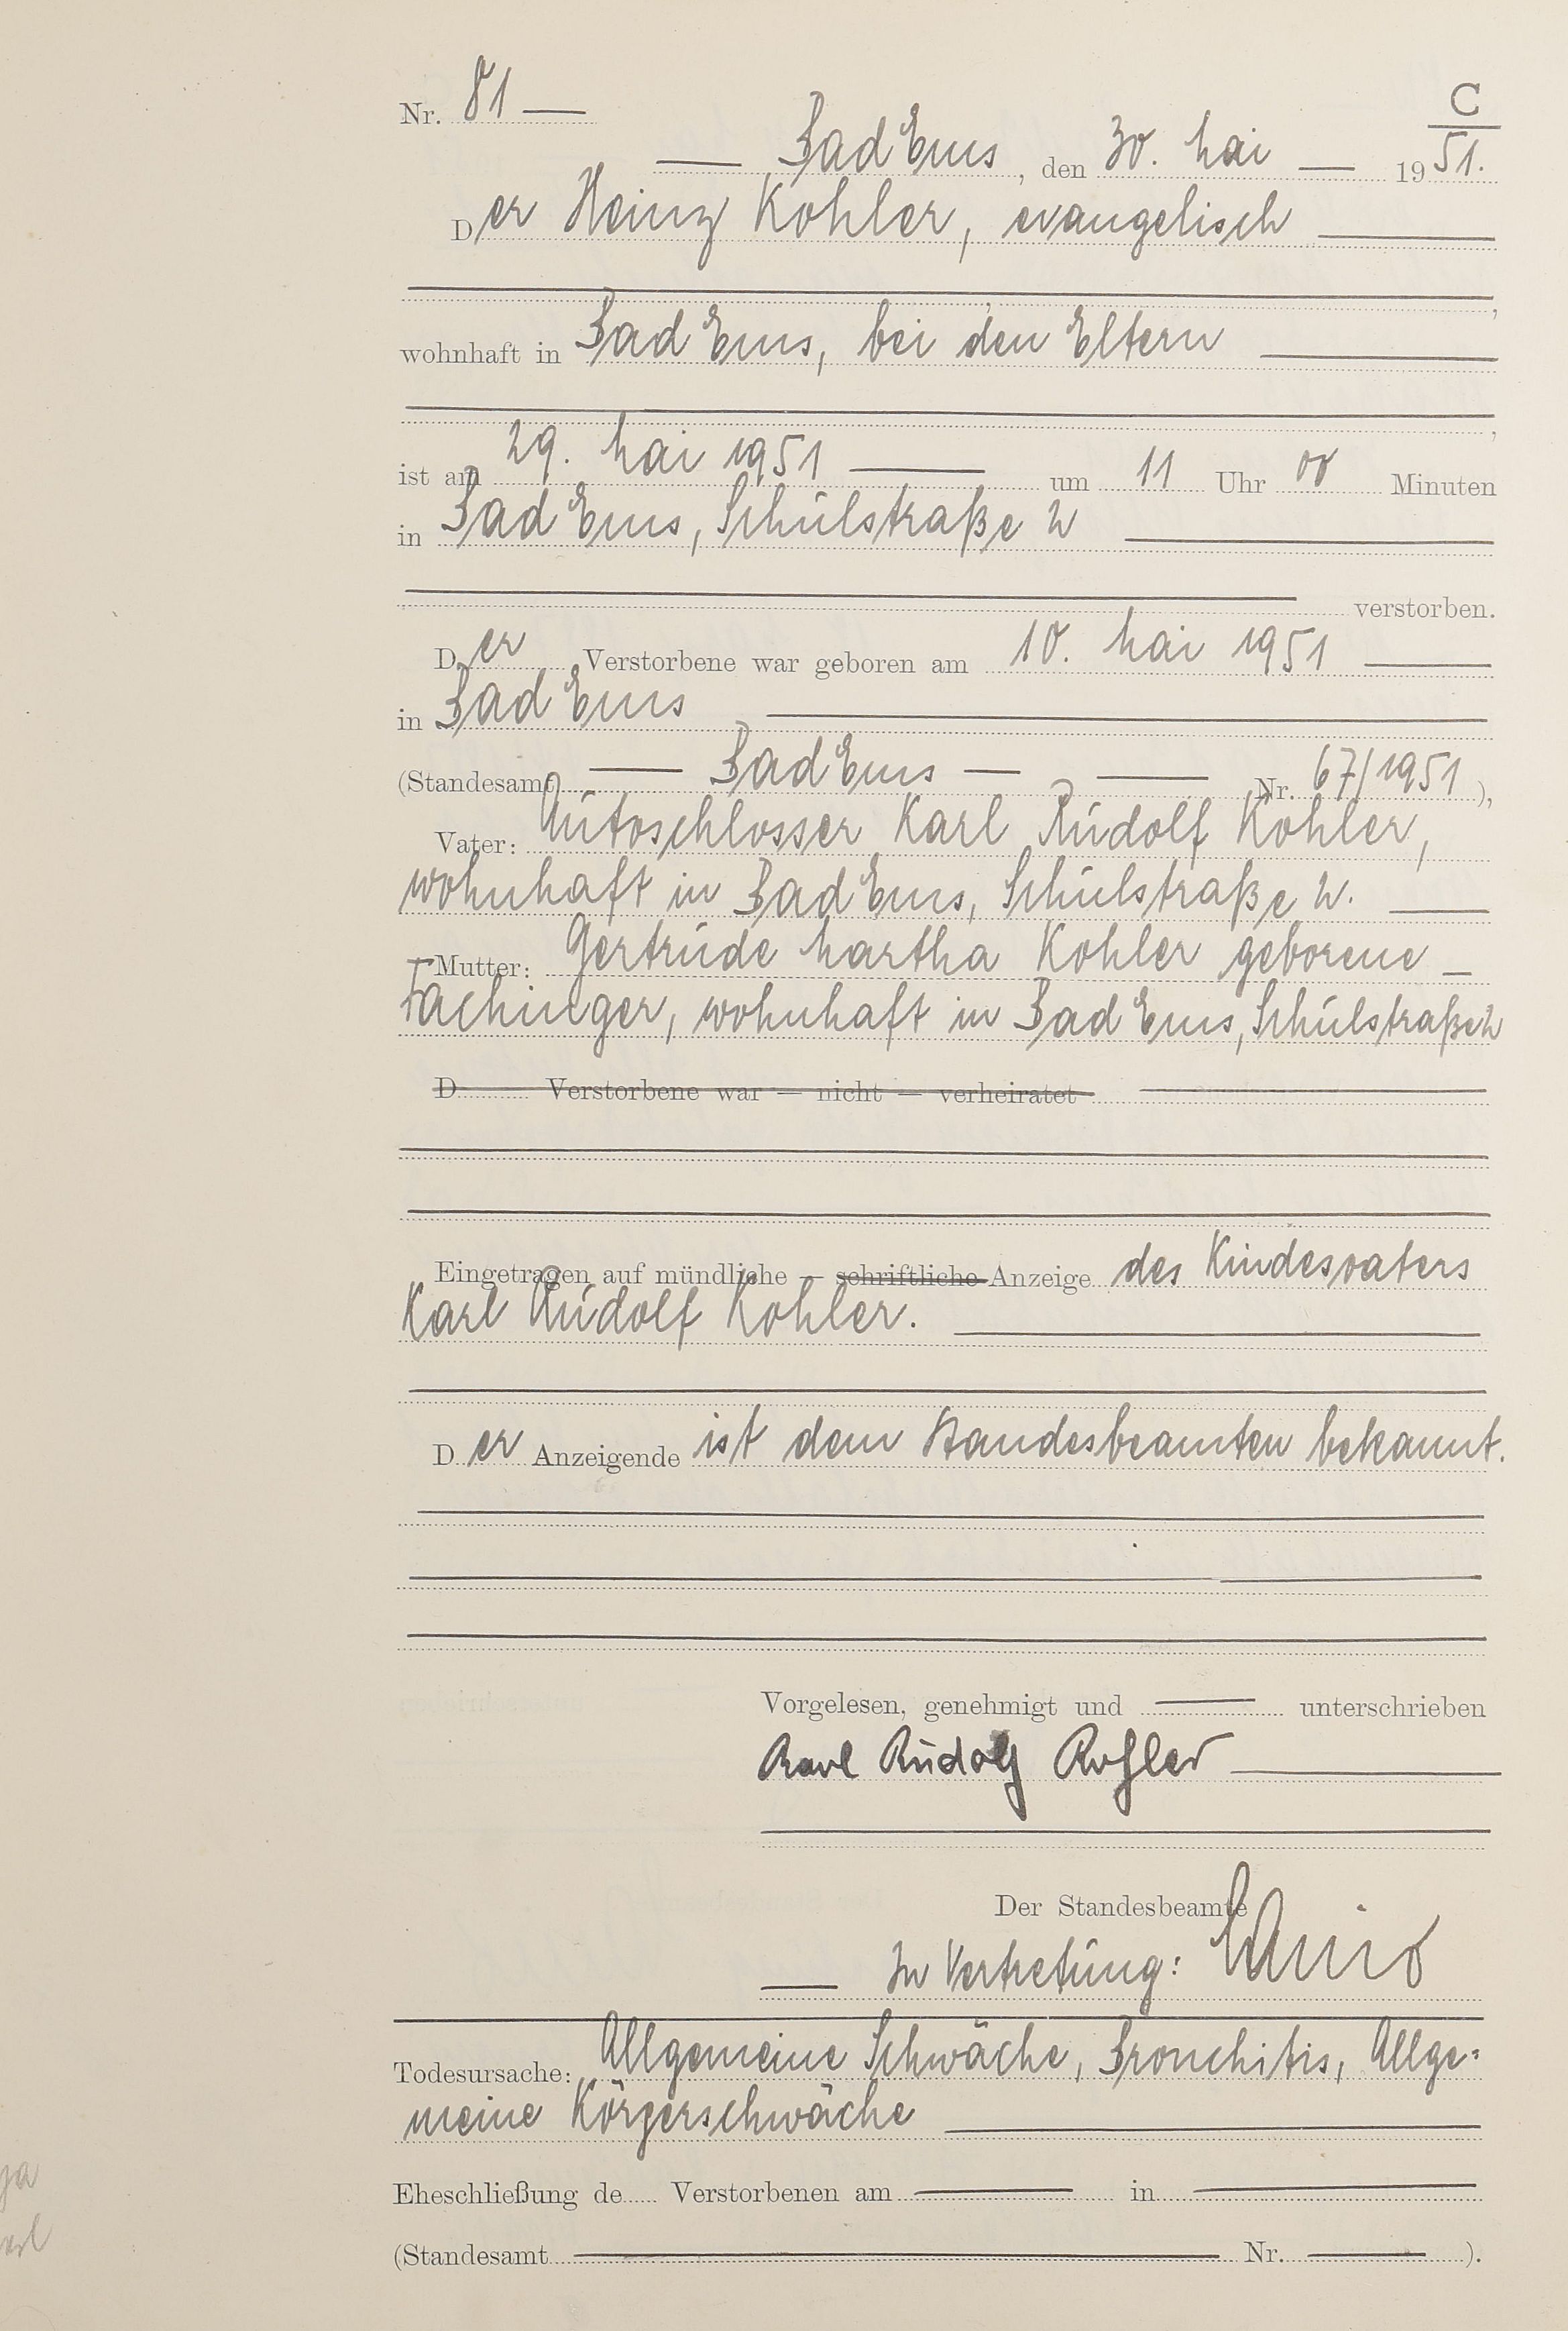 Nr. 81 —
C
— Bad Ems, den 30. Mai — 1951.
Der Heinz Kohler, evangelisch —
wohnhaft in Bad Ems, bei den Eltern —
ist am 29. Mai 1951 — um 11 Uhr 00 Minuten
in Bad Ems, Schulstraße 2 —
verstorben.
Der Verstorbene war geboren am 10. Mai 1951 —
in Bad Ems —
(Standesamt — Bad Ems — — Nr. 67/1951),
Vater: Autoschlosser Karl Rudolf Kohler,
wohnhaft in Bad Ems, Schulstraße 2. —
Mutter: Gertrude Martha Kohler geborene —
Fachinger, wohnhaft in Bad Ems, Schulstraße 2
D Verstorbene war — nicht — verheiratet
Eingetragen auf mündliche — schriftliche Anzeige des Kindesvaters
Karl Rudolf Kohler. —
Der Anzeigende ist dem Standesbeamten bekannt.
Vorgelesen, genehmigt und — unterschrieben
Karl Rudolf Kohler —
Der Standesbeamte
— In Vertretung:
Todesursache: Allgemeine Schwäche, Bronchitis, Allge-
meine Körperschwäche —
Eheschließung de Verstorbenen am — in —
(Standesamt — Nr. — ).